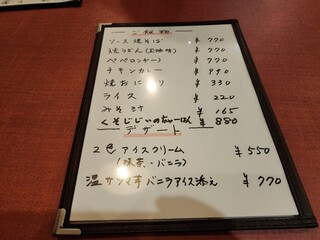 ご飯類
ソース焼そば ¥770
焼うどん(和風味) ¥770
ペペロンチーノ ¥770
チキンカレー ¥990
焼おにぎり ¥330
ライス ¥220
みそ汁 ¥165
くそじじいのちゃーはん ¥880
デザート
2色アイスクリーム ¥550
(抹茶・バニラ)
温サツマ芋バニラアイス添え ¥770